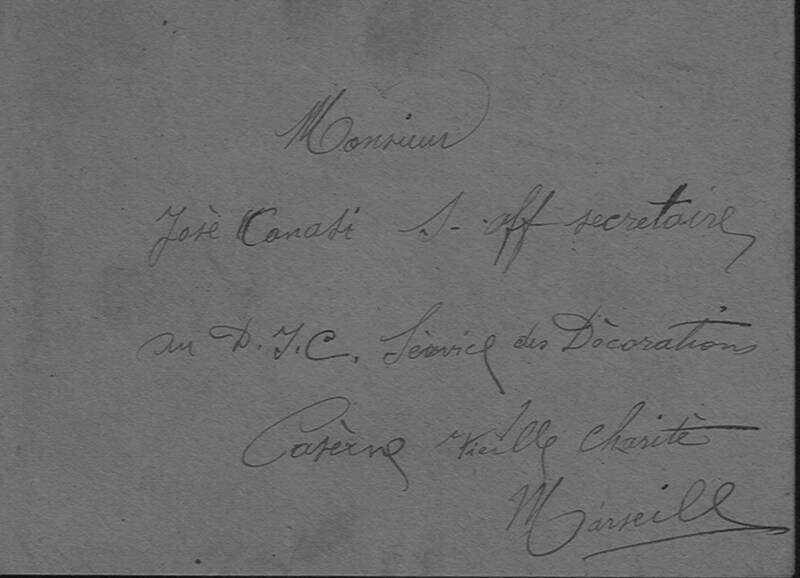 Monsieur
Josè Canasi S- off secretaire
au D.I.C. Sèrvice des Dècorations
Casèrne Vieille Charitè
Marseille